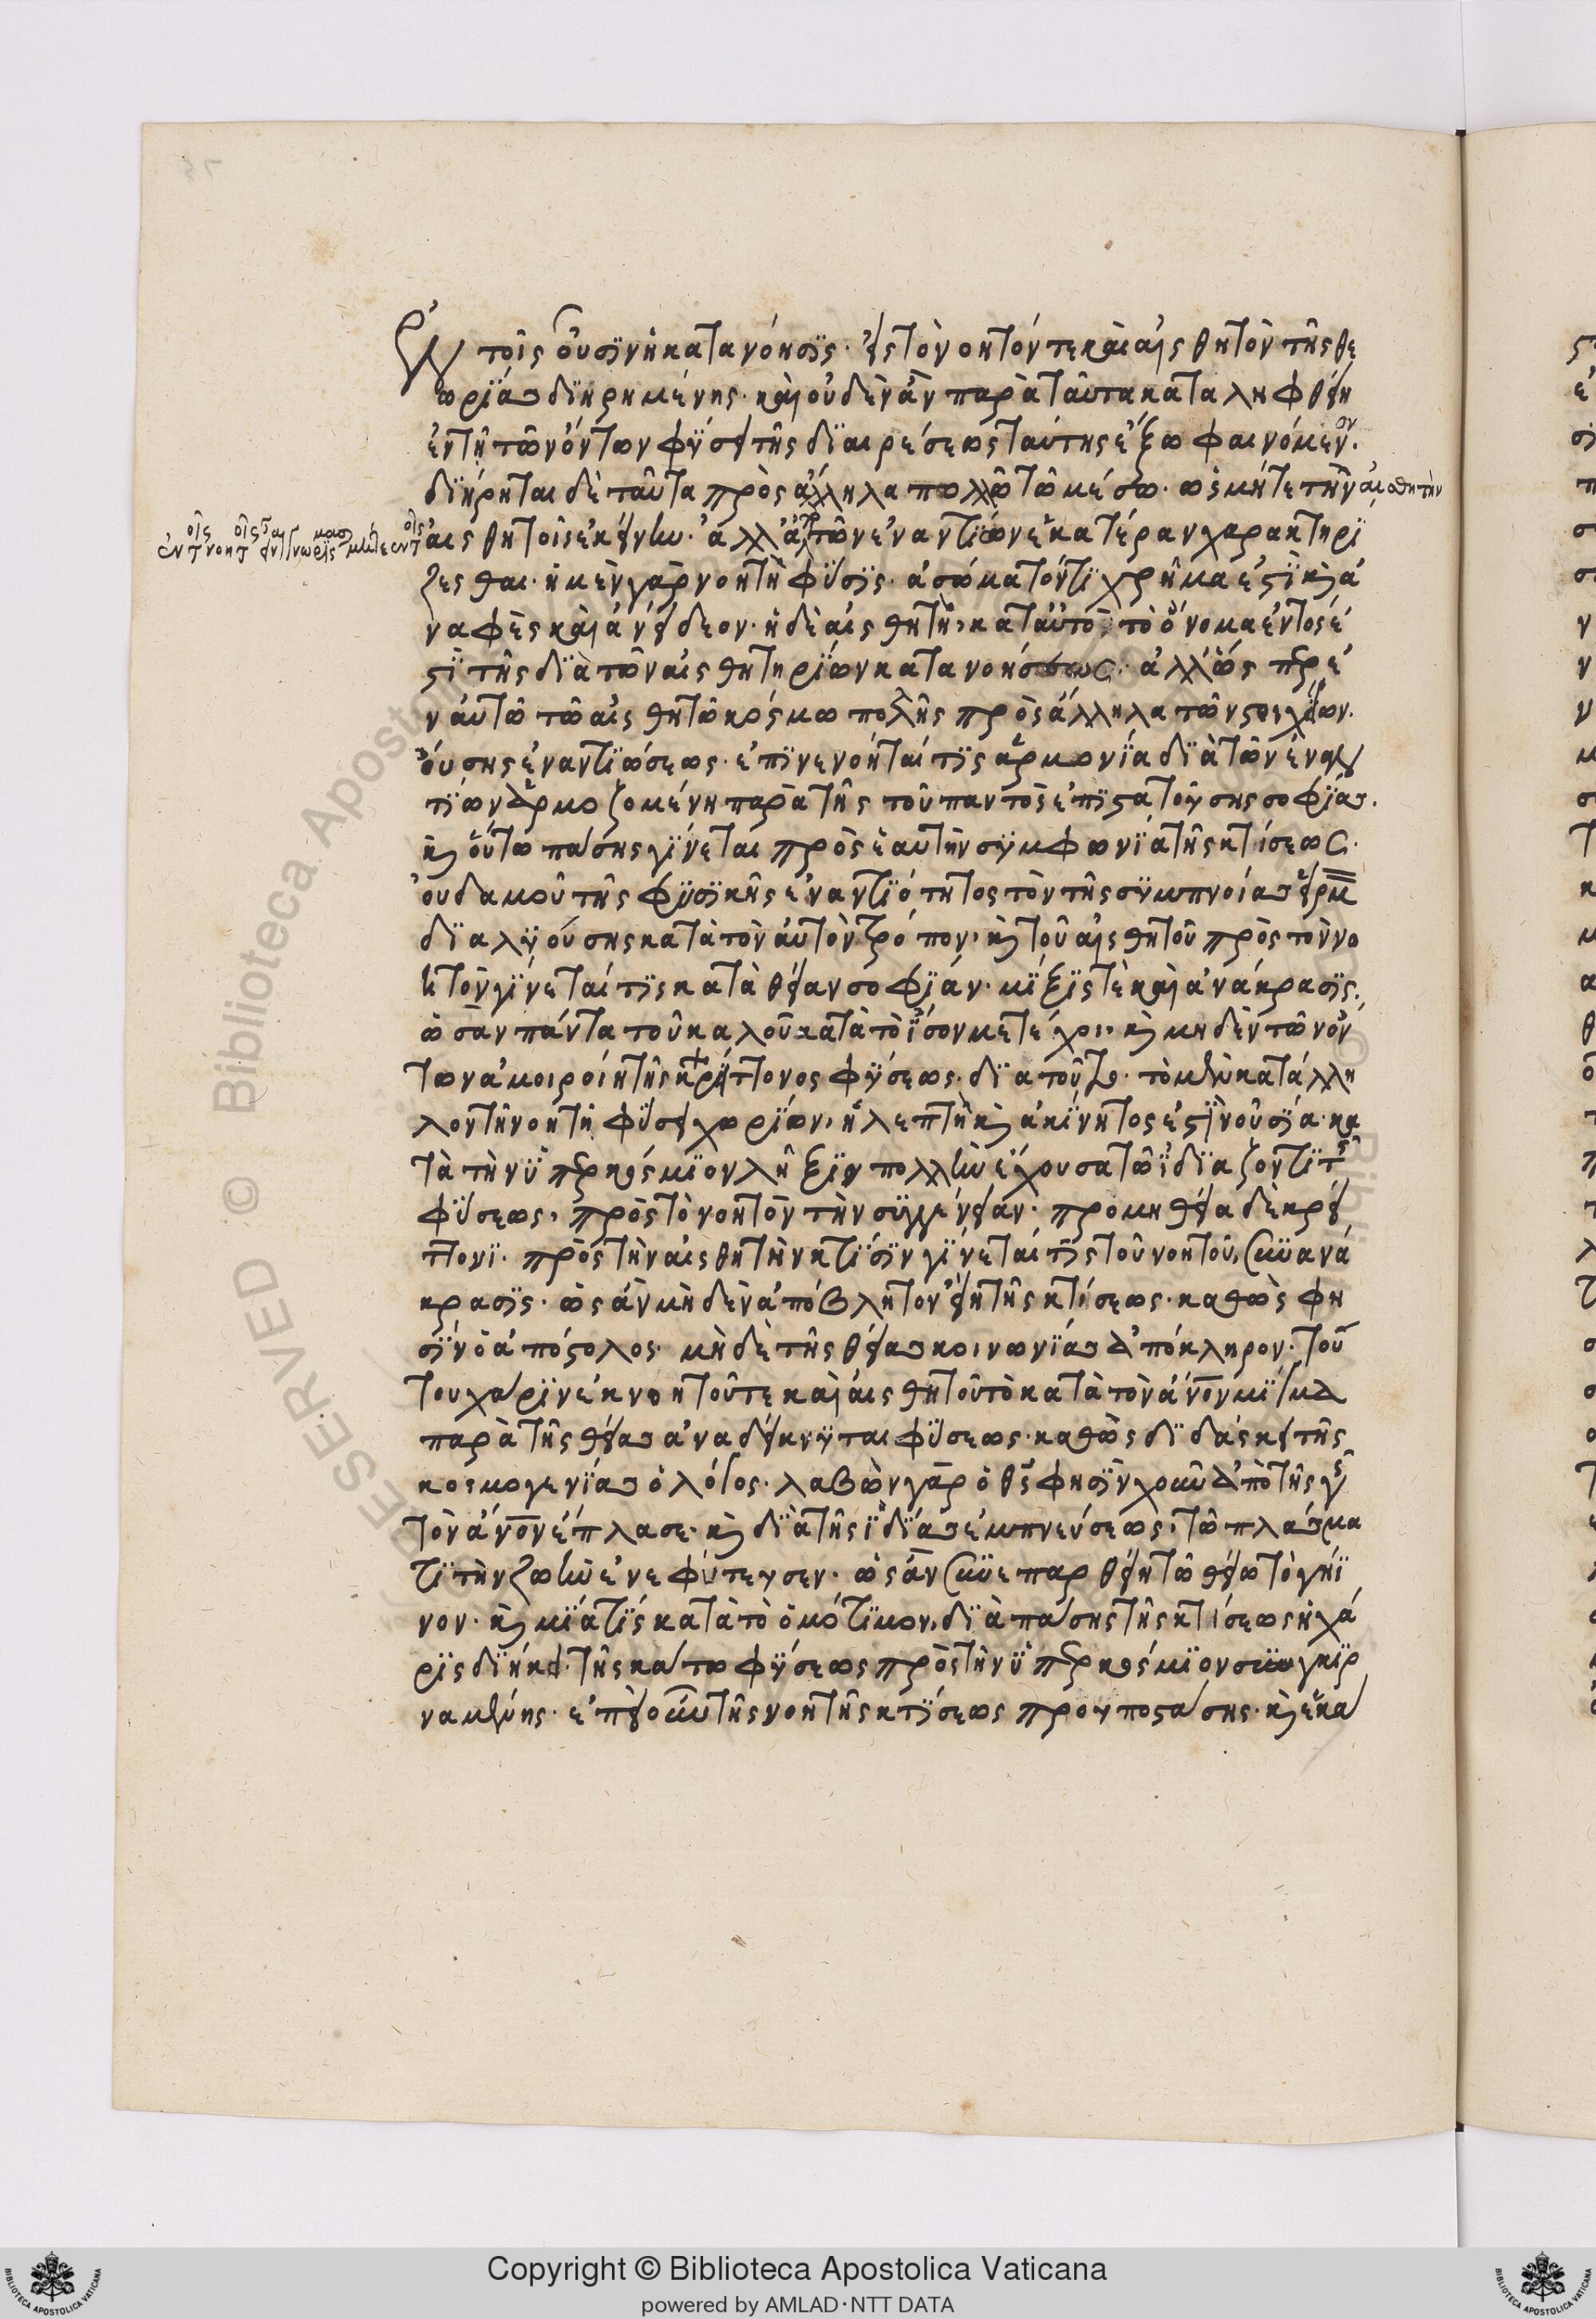 Ἐν τοῖς οὖσϊν ἡ κατανόησϊς· εἰς τὸ νοητόν τε καὶ αἰσθητὸν τῆς θε
ωρΐας δϊηρημένης· καὶ οὐδὲν ἂν παρὰ ταῦτα καταληφθείη
ἐν τῆ τῶν ὄντων φϋσει τῆς δϊαιρέσεως ταύτης ἔξω φαινόμενον·
δϊήρηται δὲ ταῦτα πρὸς ἄλληλα πολλῶ τῶ μέσω· ὡς μήτε τὴν αἰσθητὴν
ἐν τοῖς νοητοῖς εἶναι γνωρίσμασϊ μήτε ἐν τοῖς
αἰσθητοῖς ἐκείνην· ἀλλ' ἀπὸ τῶν ἐναντΐων ἑκατέραν χαρακτηρΐ
ζεσθαι· ἡ μὲν γὰρ νοητὴ φύσϊς· ἀσώματόν τϊ χρῆμα ἐστὶ καὶ ἀ
ναφὲς καὶ ἀνείδεον· ἡ δὲ αἰσθητὴ, κατ' αὐτὸ τὸ ὄνομα ἐντός ἐ
στϊ τῆς δϊὰ τῶν αἰσθητηρΐων κατανοήσεως· ἀλλ' ὥσπερ ἐ
ν αὐτῶ τῶ αἰσθητῶ κόσμω πολλῆς πρὸς ἄλληλα τῶν στοιχείων·
οὔσης ἐναντϊώσεως· ἐπϊνενόηταί τϊς ἁρμονΐα δϊὰ τῶν ἐναν
τΐων ἁρμοζομένη παρὰ τῆς τοῦ παντὸς ἐπϊστατούσης σοφΐας·
καὶ οὕτω πάσης γΐνεται πρὸς ἑαυτὴν συμφωνΐα τῆς κτίσεως·
οὐδαμοῦ τῆς φϋσϊκῆς ἐναντϊότητος τὸν τῆς σϋμπνοίας εἱρμὸν
δϊαλϋούσης κατὰ τὸν αὐτὸν τρόπον, καὶ τοῦ αἰσθητοῦ πρὸς τὸ νο
ητὸν γΐνεταί τϊς κατὰ θείαν σοφΐαν· μΐξϊς τὲ καὶ ἀνάκρασϊς·
ὡς ἂν πάντα τοῦ καλοῦ κατὰ τὸ ἴσον μετέχοι, καὶ μηδὲν τῶν ὄν
των ἀμοιροίη τῆς κρείττονος φύσεως· δϊὰ τοῦτο· τὸ μὲν κατάλλη
λον τῆ νοητῆ φύσει χωρΐον, ἡ λεπτὴ καὶ ἀκΐνητος ἐστϊν οὐσΐα· κα
τὰ τὴν ϋπερκόσμϊον λῆξϊν πολλὴν ἔχουσα τῶ ϊδϊάζοντϊ τῆς
φύσεως, πρὸς τὸ νοητὸν τὴν συγγένειαν· προμηθεία δὲ κρεί
ττονϊ· πρὸς τὴν αἰσθητὴν κτΐσϊν γΐνεταί τϊς τοῦ νοητοῦ, συνανά
κρασϊς· ὡς ἂν μὴδὲν ἀπόβλητον εἴη τῆς κτίσεως· καθὼς φη
σϊν ὁ ἀπόστολος· μὴδὲ τῆς θείας κοινωνΐας ἀπόκληρον· τού
του χάρϊν ἐκ νοητοῦ τε καὶ αἰσθητοῦ τὸ κατὰ τὸν ἄνον μΐγμα
παρὰ τῆς θείας ἀναδείκνϋται φύσεως· καθὼς δϊδάσκει τῆς
κοσμογενΐας ὁ λόγος· λαβὼν γὰρ ὁ θς φησϊν χοῦν ἀπὸ τῆς γῆς
τὸν ἄνον ἔπλασε· καὶ δϊὰ τῆς ϊδΐας ἐμπνεύσεως, τῶ πλάσμα
τϊ τὴν ζωὴν ἐνεφύτευσεν· ὡς ἂν συνεπαρθείη τῶ θείω τὸ γήϊ
νον· καὶ μΐα τϊς κατὰ τὸ ὁμότϊμον, δϊὰ πάσης τῆς κτίσεως ἡ χά
ρϊς δϊήκει· τῆς κάτω φύσεως πρὸς τὴν ϋπερκόσμϊον συγκϊρ
ναμένης· ἐπεὶ οὖν τῆς νοητῆς κτΐσεως προυποστάσης· καὶ ἑκά